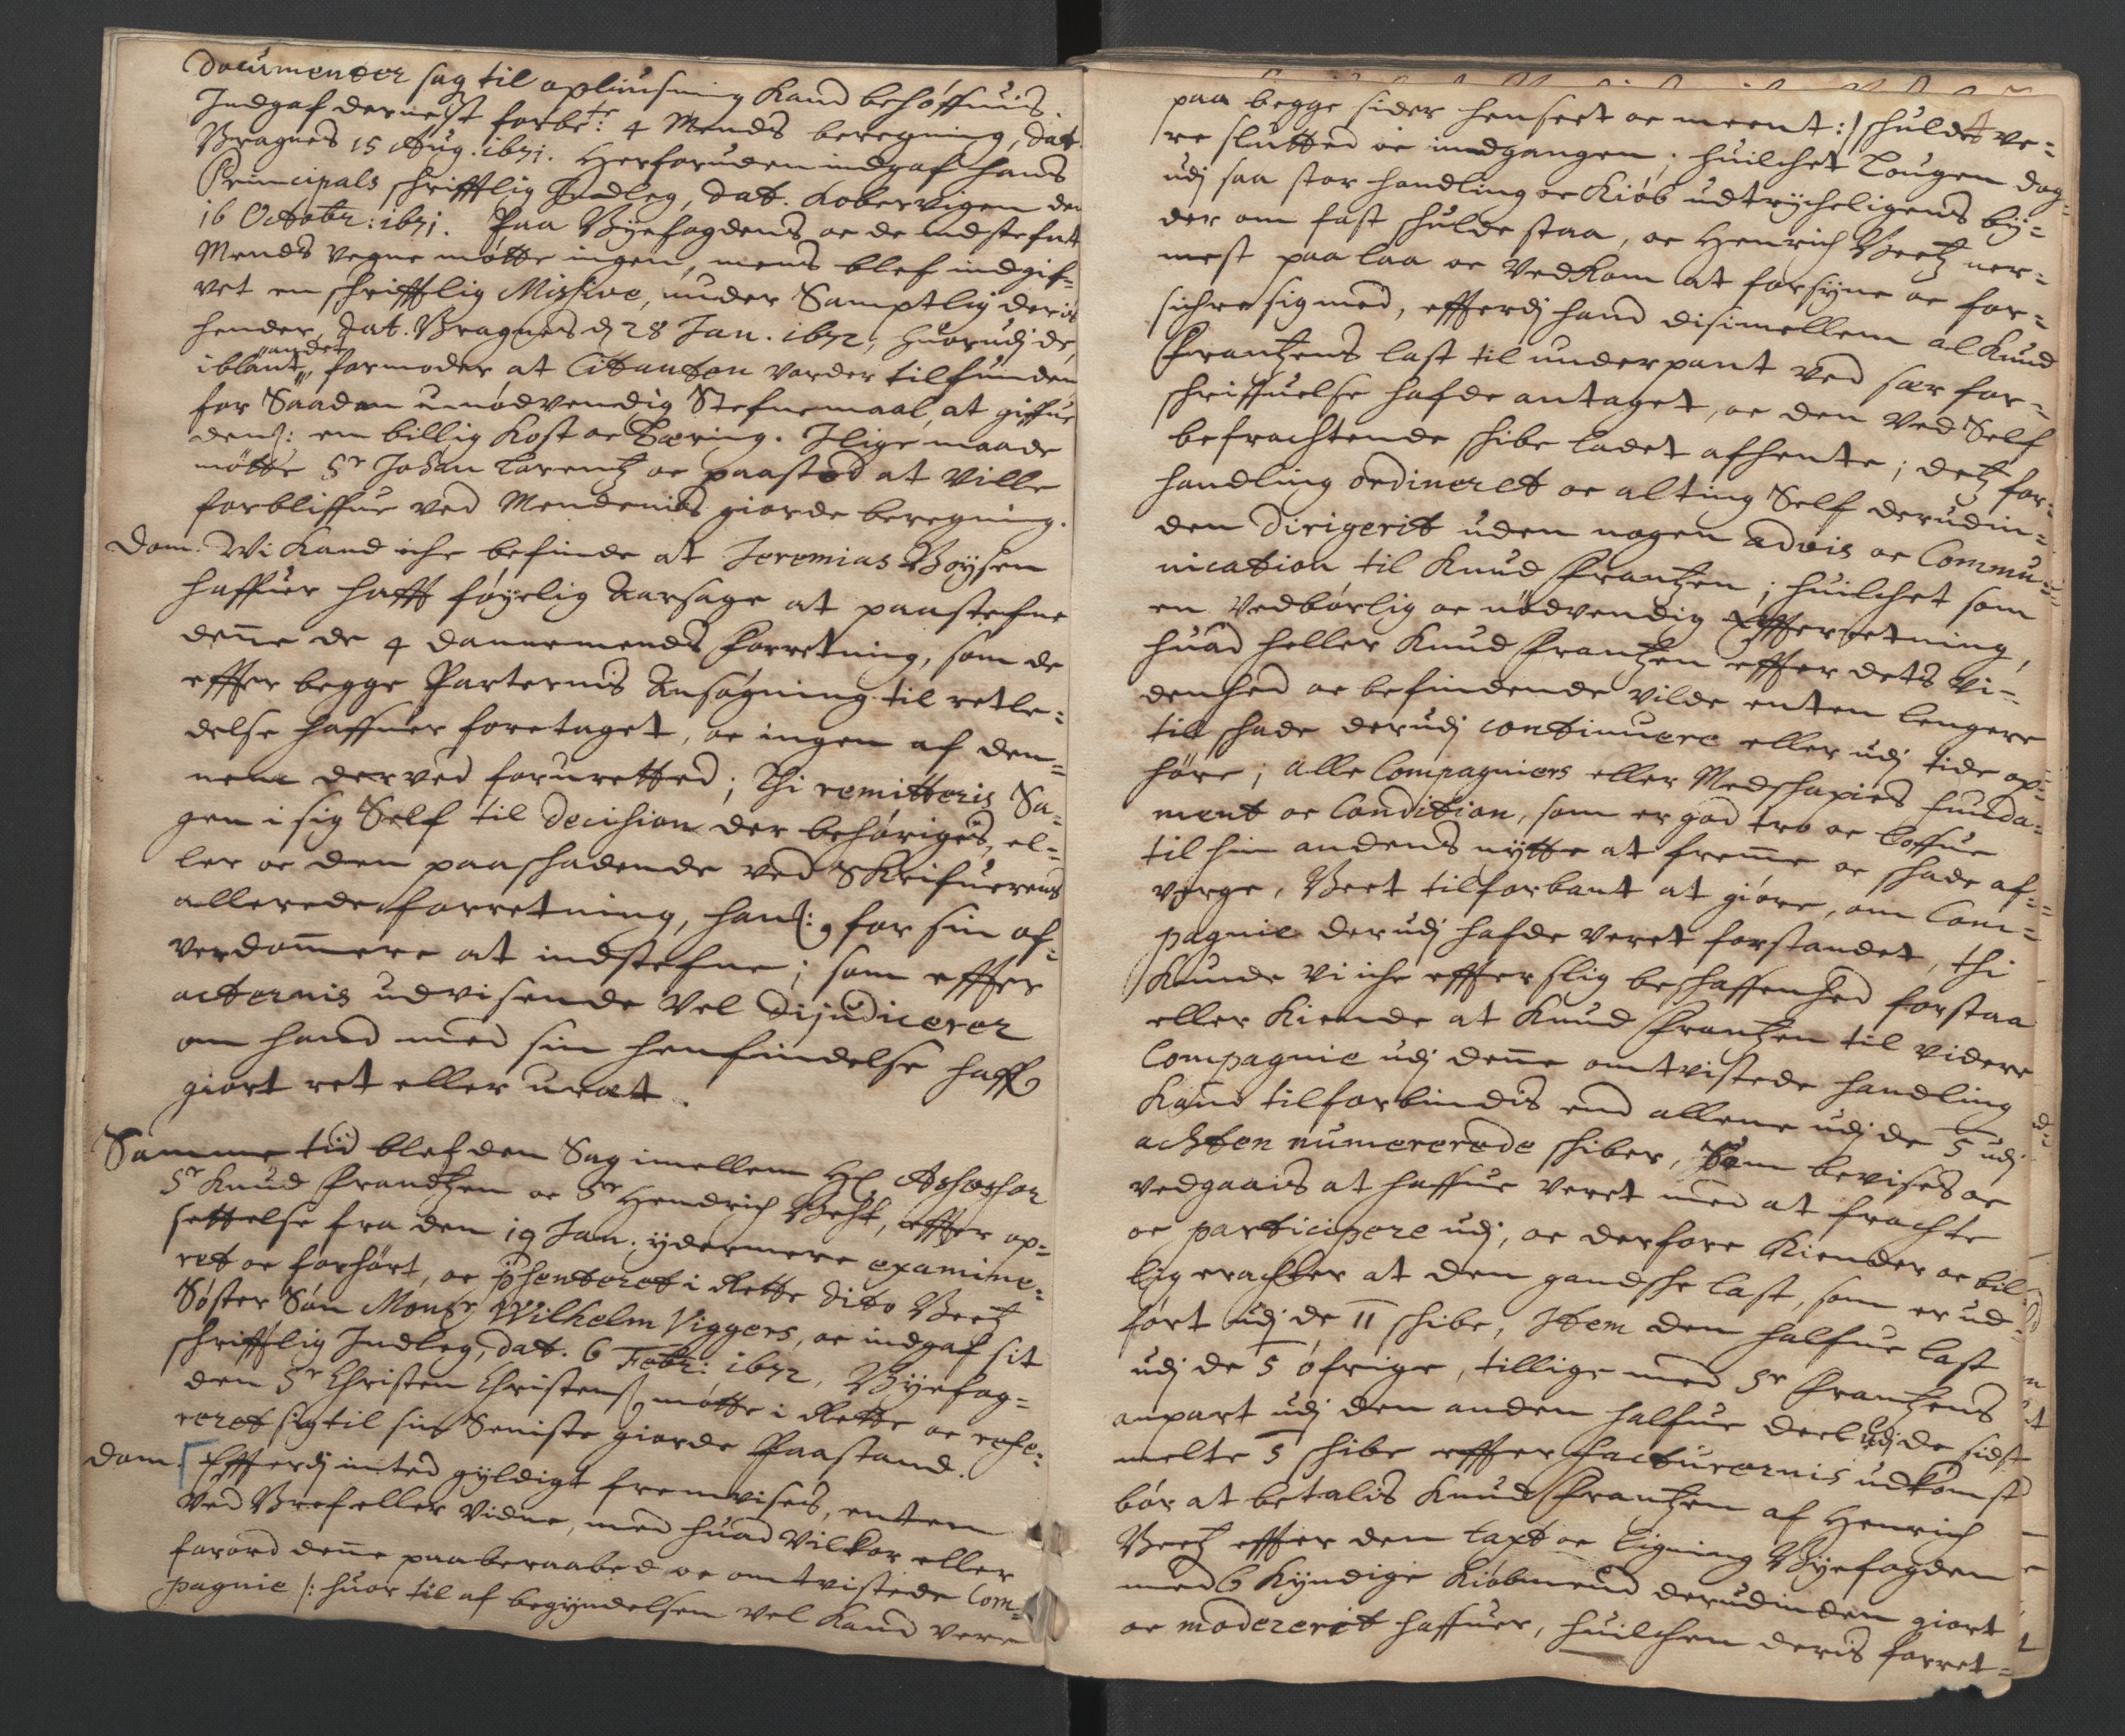 Documenter sag til opliusning kand behøffuis
Indgaf dernest forbte: 4 Mends beregning, dat.
Bragnes 15 Aug. 1671. Herforuden indgaf hans
Principals schrifftlig Indleg, dat. Kobervigen den
16 Octobr: 1671. Paa Byefogdens oc de indstefnte
Mends vegne møtte ingen, mens blef indgif-
vet en schrifftlig Missive, under Samptlig deris
hender, dat. Bragnes d 28 Jan. 1672, huorudj de,
iblant andet, formoder at Citanten vorder tilfunden
for Saadan unødvendig Stefnemaal, at giffue
dennem: en billig Kost oc Tæring. Ilige maade
møtte Sr Johan Lorentz oc paastod at ville
forbliffue ved Mendenis giorde beregning.
Dom. Wi kand iche befinde at Jeremias Boysen
haffuer hafft føyelig Aarsage at paastefne
denne de 4 Dannemends forretning, som de
effter begge Parternis Ansøgning til retle-
delse haffuer foretaget, oc ingen af den-
nem derved foruretted; Thi remitteris Sa-
gen i sig Self til Decision der behøriges, el-
ler oc den paaschadende ved Skrifuerens
allerede forretning, hans: for sin of-
verdommere at indstefne; som effter
acternis udvisende vel dijudicerer
om hand med sin henfindelse haffr
giort ret eller uræt.
Samme tid blef den Sag imellem Hl Assessor
Sr Knud Frandtzen oc Sr Hendrich Beht, effter op-
settelse fra den 19 Jan. ydermere examine-
ret oc forhørt, oc præsenteret i Rette dito Beetz
Søster Søn Monsr Wilhelm Viggers, oc indgaf sit
schrifftlig Indleg, dat. 6 Febr: 1672, Byefog-
den Sr Christen Christens. møtte i Rette oc refe-
reret sig til sin Seniste giorde Paastand.
Dom. Effterdj inted gyldigt fremvises, enten
ved Bref eller Vidne, med huad Vilkor eller
forord denne paaberaabed oc omtvistede Com-
pagnie /: huor til af begyndelsen vel kand vere
paa begge sider henseet oc meent :/ schulde ve-
re slutted oc indgangen; huilchet Lougen dog
udj saa stor handling oc Kiøb udtrycheligens by-
der om fast schulde staa, oc Henrich Beetz ner-
mest paa laa oc vedkom at forsyne oc for-
sichre sig med, effterdj hand disimellem al Knud
Frantzens last til underpant ved sær for-
schriffuelse hafde antaget, oc den ved Self
befrachtende schibe ladet afhente; detz for-
handling ordineret oc alting Self derudin-
den Dirigerit uden nogen advis oc Commu-
nication til Knud Frantzen; huilchet som
en vedbørlig oc nødvendig Effterretning,
huad heller Knud Frantzen effter dets vi-
denhed oc befindende vilde enten lengere
till schade derudj continuere eller udj tide op-
høre; alle Compagniers eller Medschapies funda-
ment oc Condition, som er god tro oc loffue
til hin andens nytte at fremme oc schade af-
verge, Beet tilforbant at giøre, om Com-
pagnie derudj hafde veret forstandet, thi
Kunde vi iche effter slig beschaffenhed forstaa
eller Kiende at Knud Frantzen til videre
Compagnie udj denne omtvistede handling
Kand tilforbindis end allene udj de 5 udj
achten numererede schiber, som bevises oc
vedgaais at haffue veret med at frachte
oc participere udj, oc derfore Kiender oc bil-
lig erachter at den gandsche last, som er ud-
ført udj de 11 schibe, Item den halfue last
udj de 5 øfrige, tillige med Sr Frantzens
anpart udj den anden halfue deel udj de sidst
melte 5 schibe effter facturernis udkomst
bør at betalis Knud Frantzen af Henrich
Beetz effter den taxt oc ligning Byefogden
med 6 Kyndige Kiøbmend derudinden giort
oc modererit haffuer, huilchen deris forret-